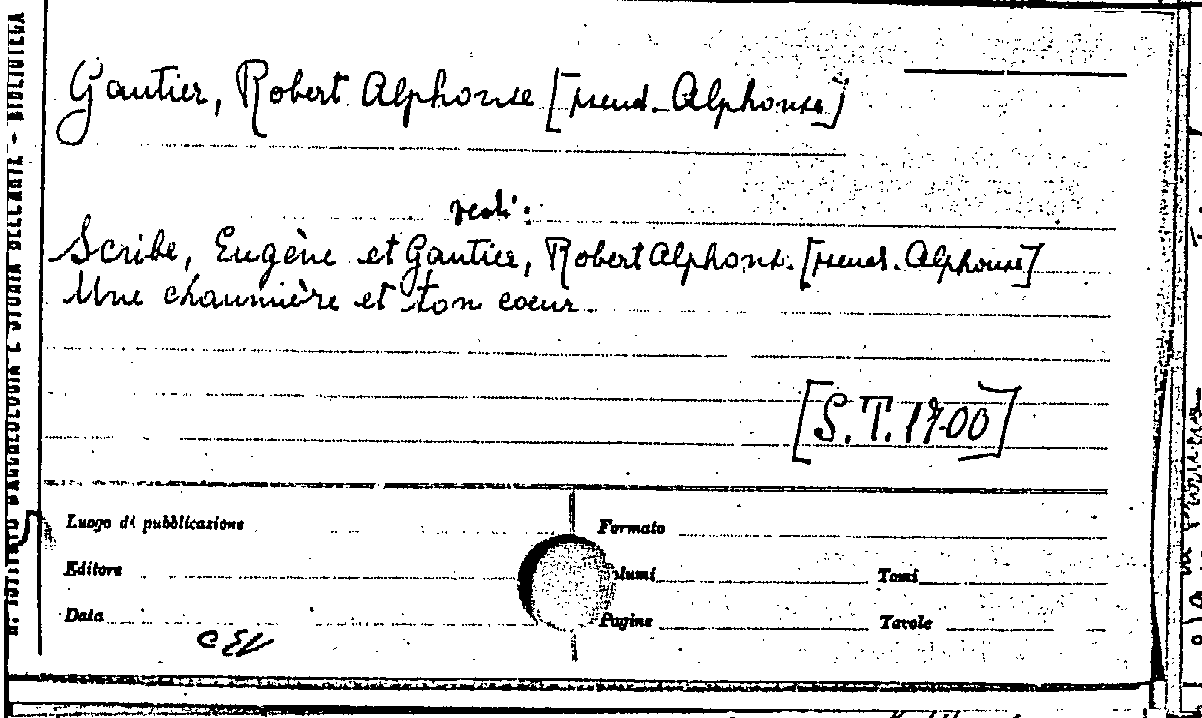 Gautier, Robert Alphonse [pseud. Alphonse]
vedi:
Scribe, Eugène et Gautier, Robert Alphons. [pseud. Alphonse]
Une chaumière et ton coeur.
[S.T. 1700]
Luogo di pubblicazione
Formato
Editore
lumi
Tomi
Data
Pagine
Tavole
R. ISTITUTO D'ARCHEOLOGIA E STORIA DELL'ARTE - BIBLIOTECA